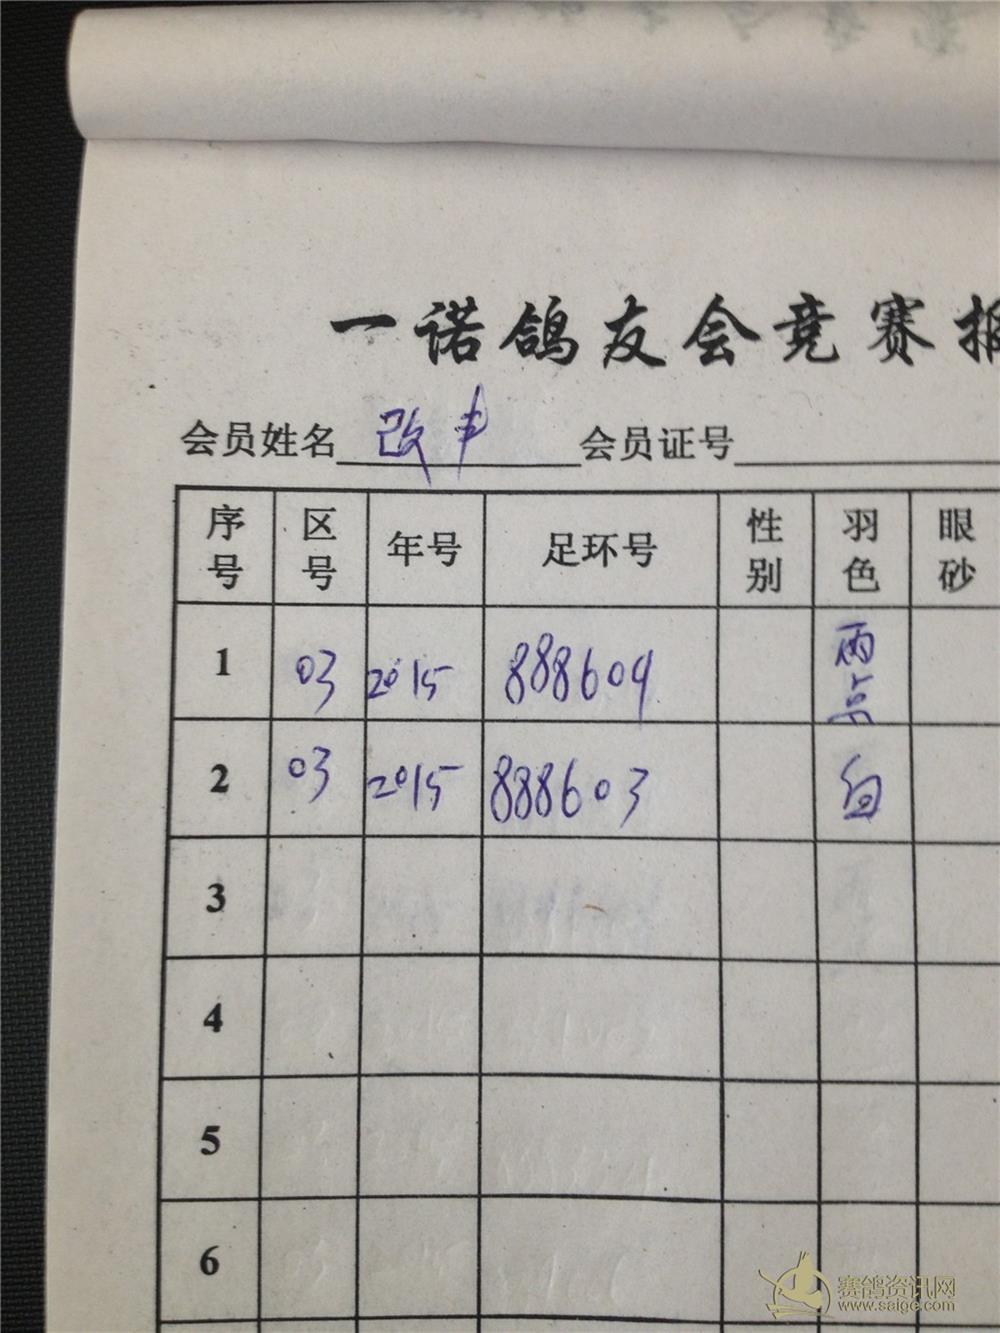 一诺鸽友会竞赛报
会员姓名 改丰 会员证号
序号 区号 年号 足环号 性别 羽色 眼砂
1 03 2015 888604 雨点
2 03 2015 888603 白
3
4
5
6
赛鸽资讯网
www.saige.com